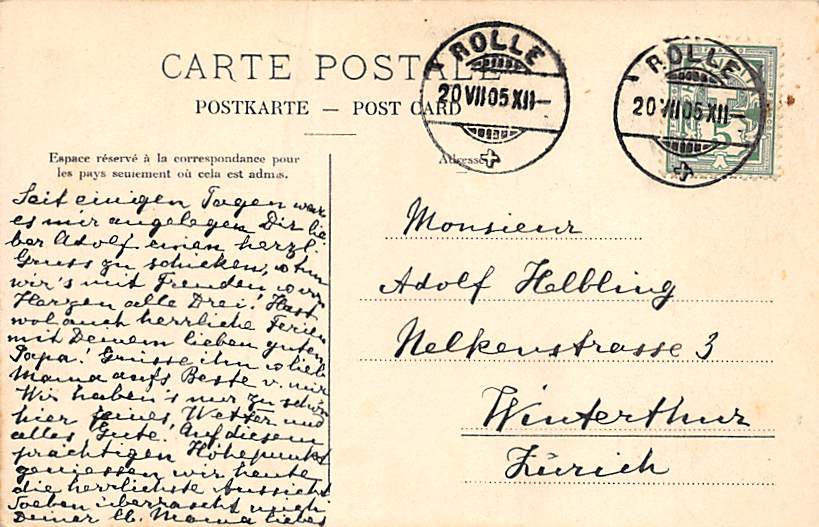 CARTE POSTALE
POSTKARTE — POST CARD
Espace réservé à la correspondance pour
les pays seulement où cela est admis.
Adresse
ROLLE
20 VII 05 XII–
ROLLE
20 VII 05 XII–
5
Seit einigen Tagen war
es mir angelegen Dir lie-
ber Adolf einen herzl.
Gruss zu schicken, tun
wir's mit Freuden von
Herzen alle Drei! Hast
wol auch herrliche Ferien
mit Deinem lieben guten
Papa! Grüsse ihn lieb
Mama aufs Beste v. mir
Wir haben's nur zu schön
hier feines Wetter und
alles Gute. Auf diesem
prächtigen Höhepunkt
geniessen wir heute
die herrlichste Aussicht
Soeben überrascht mich
Deiner lb. Mama liebes
Monsieur
Adolf Helbling
Nelkenstrasse 3
Winterthur
Zürich